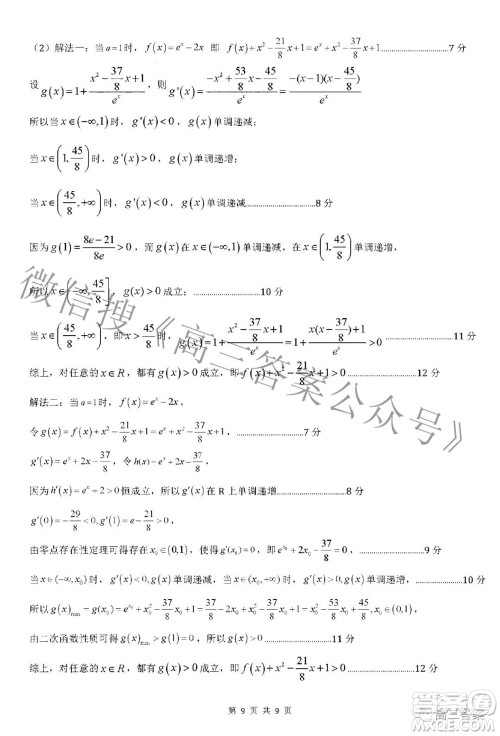 （2）解法一：当 a=1时，f(x)=e^x-2x 即 f(x)+x²-21/8x=e^x+x²-37/8x………7 分
设 g(x)=1+(x²-37/8x+1)/e^x，则 g'(x)=(-x²+53/8x-45/8)/e^x=(-(x-1)(x-45/8))/e^x
所以当 x∈(-∞,1) 时，g'(x)<0，g(x) 单调递减；
当 x∈(1,45/8) 时，g'(x)>0，g(x) 单调递增；
当 x∈(45/8,+∞) 时，g'(x)<0，g(x) 单调递减………8 分
因为 g(1)=(8e-21)/8e>0，而 g(x) 在 (-∞,1) 单调递减，在 x∈(1,45/8) 单调递增，
所以 x∈(-∞,45/8] g(x)>0 成立；………10 分
当 x∈(45/8,+∞)，即 x>45/8 时，g(x)=1+(x²-37/8x+1)/e^x=1+(x(x-37/8)+1)/e^x>0 ………11 分
综上，对任意的 x∈R，都有 g(x)>0 成立，即 f(x)+x²-21/8x>-1………12 分
解法二：当 a=1时，f(x)=e^x-2x，
令 g(x)=f(x)+x²-21/8x+1=e^x+x²-37/8x+1，………7 分
g'(x)=e^x+2x-37/8，令 h(x)=e^x+2x-37/8，
因为 h'(x)=e^x+2>0 恒成立，所以 g'(x) 在 R 上单调递增………8 分
g'(0)=-29/8<0, g'(1)=e-21/8>0，
由零点存在性定理可得存在 x₀∈(0,1)，使得 g'(x₀)=0，即 e^x₀+2x₀-37/8=0………9 分
当 x∈(-∞,x₀)，g'(x)<0, g(x) 单调递减，当 x∈(x₀,+∞)，g'(x)>0, g(x) 单调递增，………10 分
所以 g(x)min=g(x₀)=e^x₀+x₀²-37/8x₀+1=x₀²-53/8x₀+45/8，x₀∈(0,1)，
由二次函数性质可得 g(x)min>g(1)=0………11 分
综上，对任意的 x∈R，都有 g(x)>0 成立，即 f(x)+x²-21/8x>-1………12 分
第 9 页 共 9 页
微信搜《高三答案公众号》